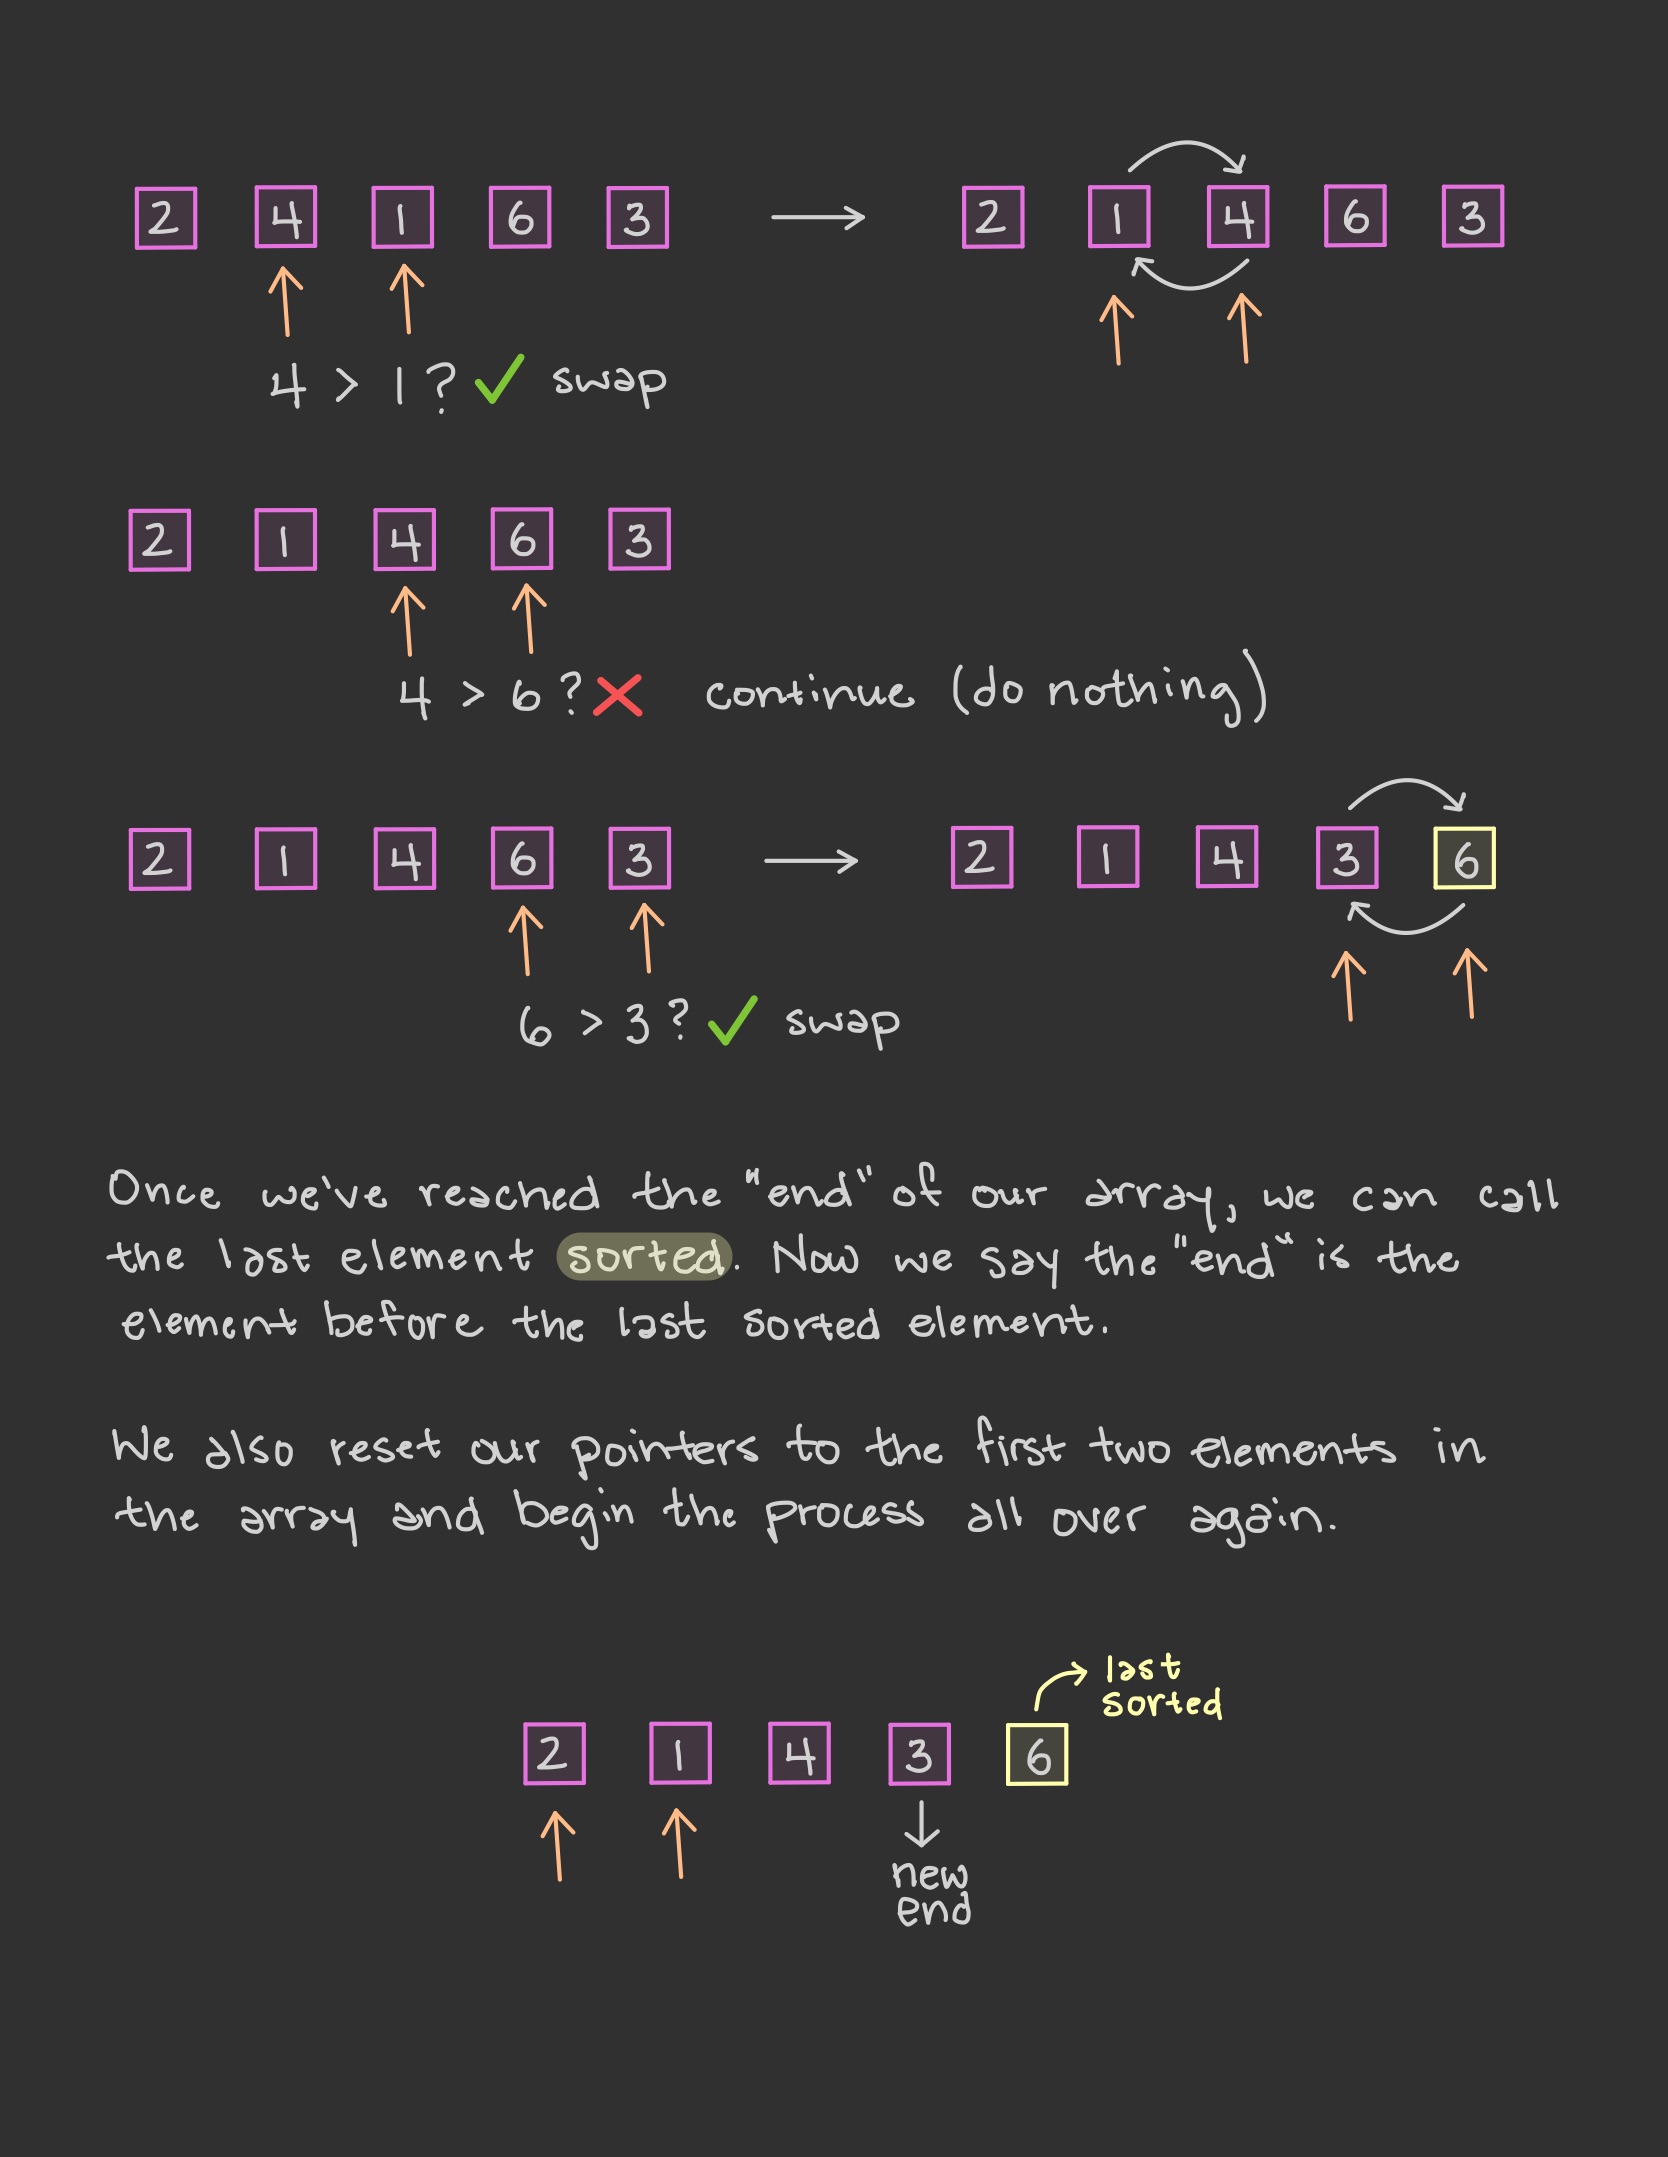 2 4 1 6 3 → 2 1 4 6 3
4 > 1 ? ✓ swap
2 1 4 6 3
4 > 6 ? ✗ continue (do nothing)
2 1 4 6 3 → 2 1 4 3 6
6 > 3 ? ✓ swap
Once we've reached the "end" of our array, we can call
the last element sorted. Now we say the "end" is the
element before the last sorted element.
We also reset our pointers to the first two elements in
the array and begin the process all over again.
last
sorted
2 1 4 3 6
new
end